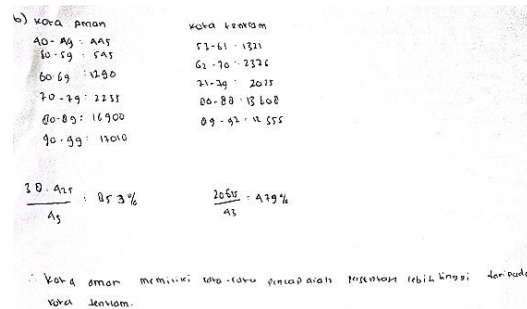 b) Kota Aman
40 - 49 : 445
50 - 59 : 545
60 - 69 : 1290
70 - 79 : 2235
80 - 89 : 16900
90 - 99 : 17010
Kota tentram
53 - 61 : 1321
62 - 70 : 2376
71 - 79 : 2025
80 - 88 : 13 608
89 - 97 : 12 555
38.425 / 45 : 853 %
/ 43 = 479 %
∴ Kota aman memiliki rata-rata pencapaian persentase lebih tinggi daripada
kota tentram.